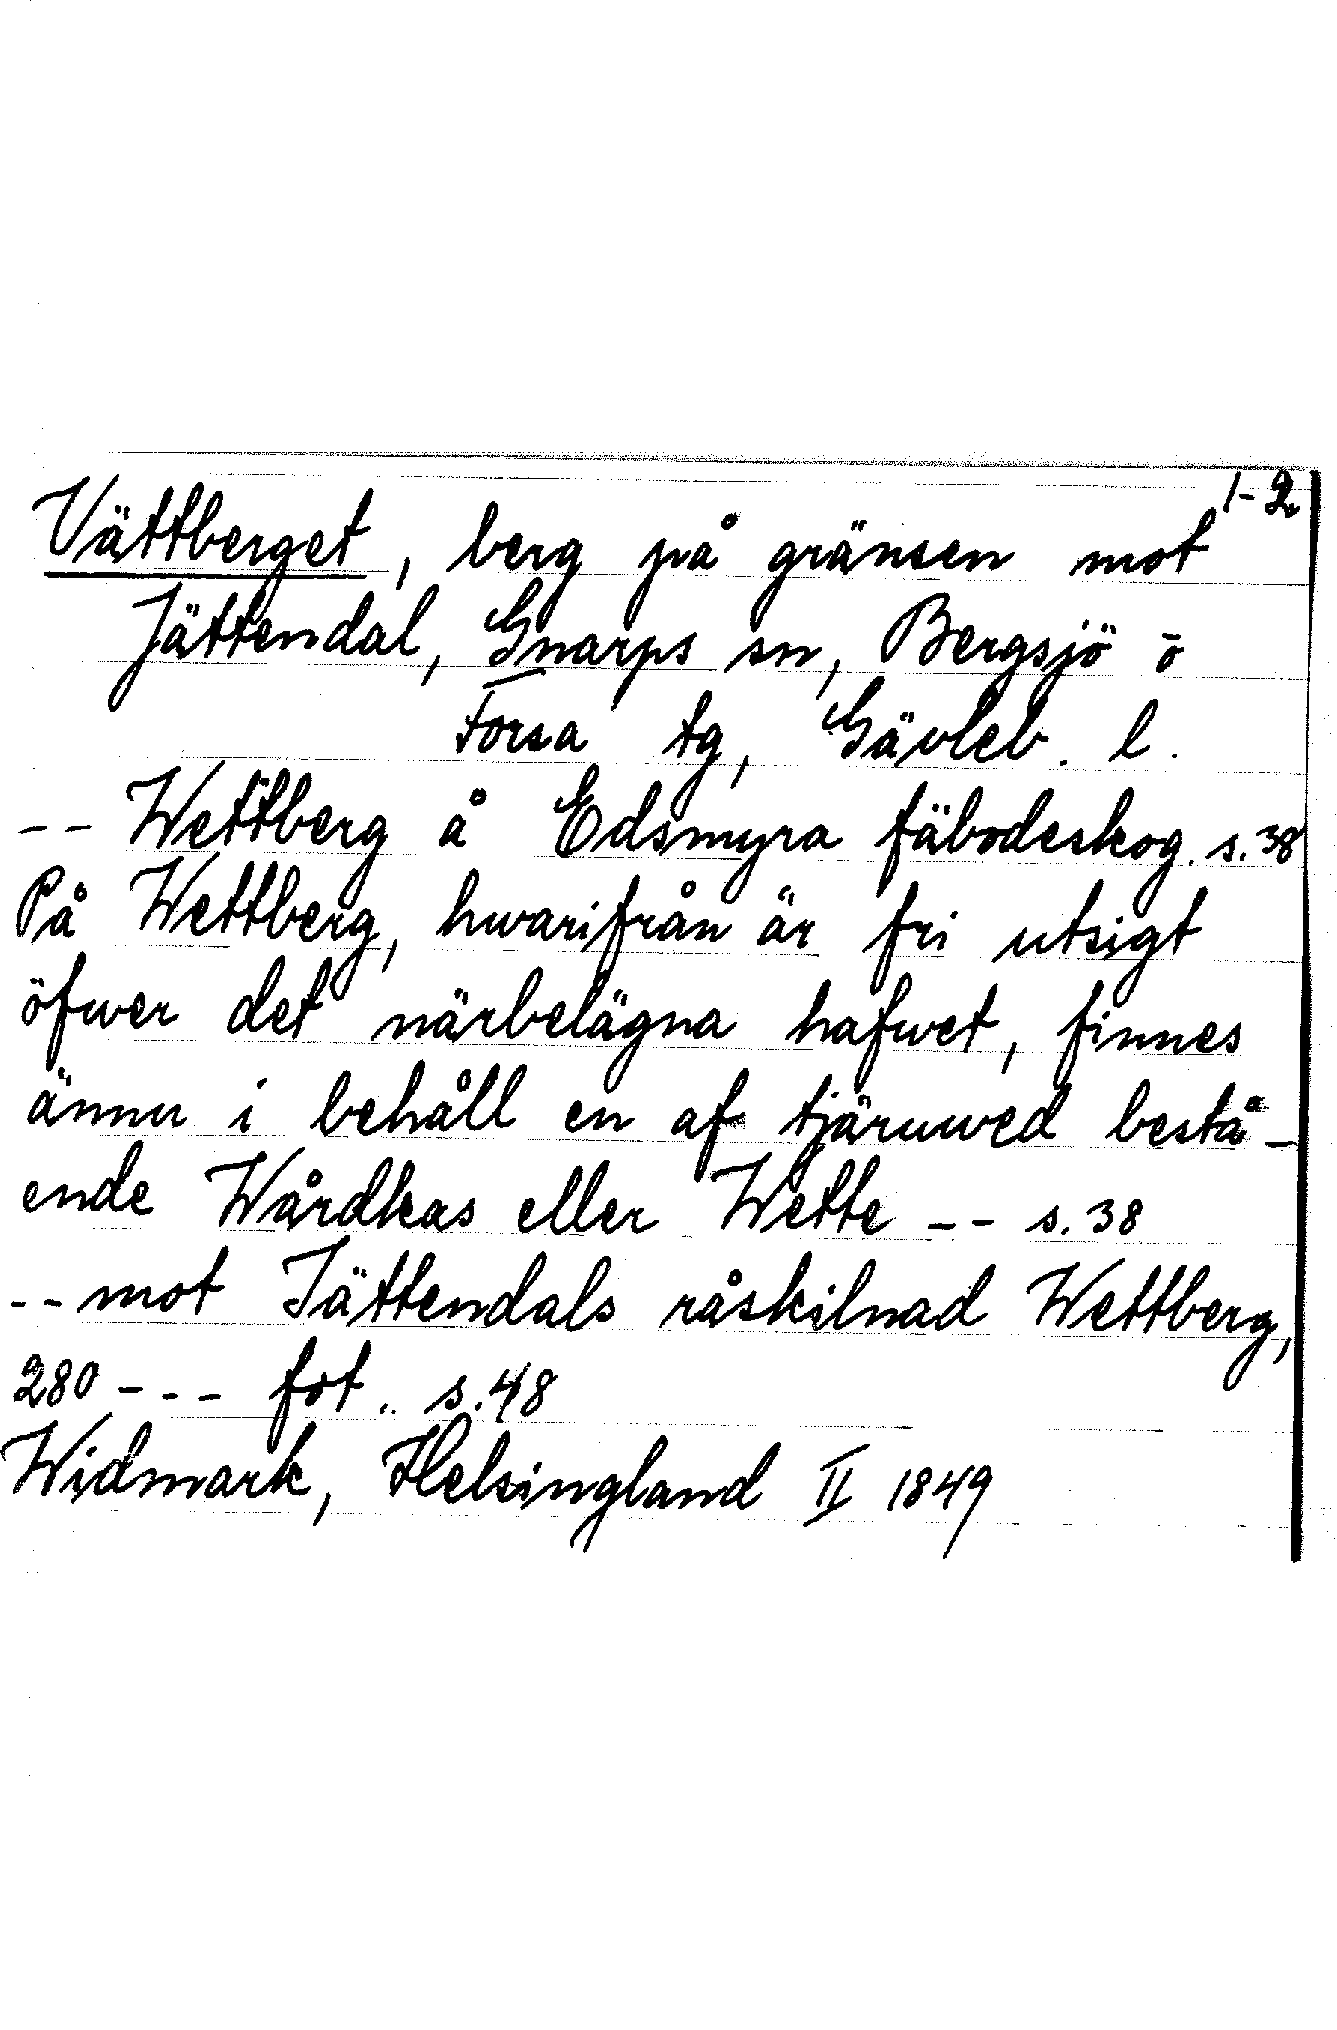 1-2.
Vättberget, berg på gränsen mot
Jättendal, Gnarps sn, Bergsjö o
Forsa tg, Gävleb. l.
-- Wettberg å Edsmyra fäbodeskog. s. 38
På Wettberg, hwarifrån är fri utsigt
öfwer det närbelägna hafwet, finnes
ännu i behåll en af tjäruwed bestå-
ende Wårdkas eller Wette -- s. 38
-- mot Jättendals råskilnad Wettberg,
280 --- fot.. s. 48
Widmark, Helsingland II 1849